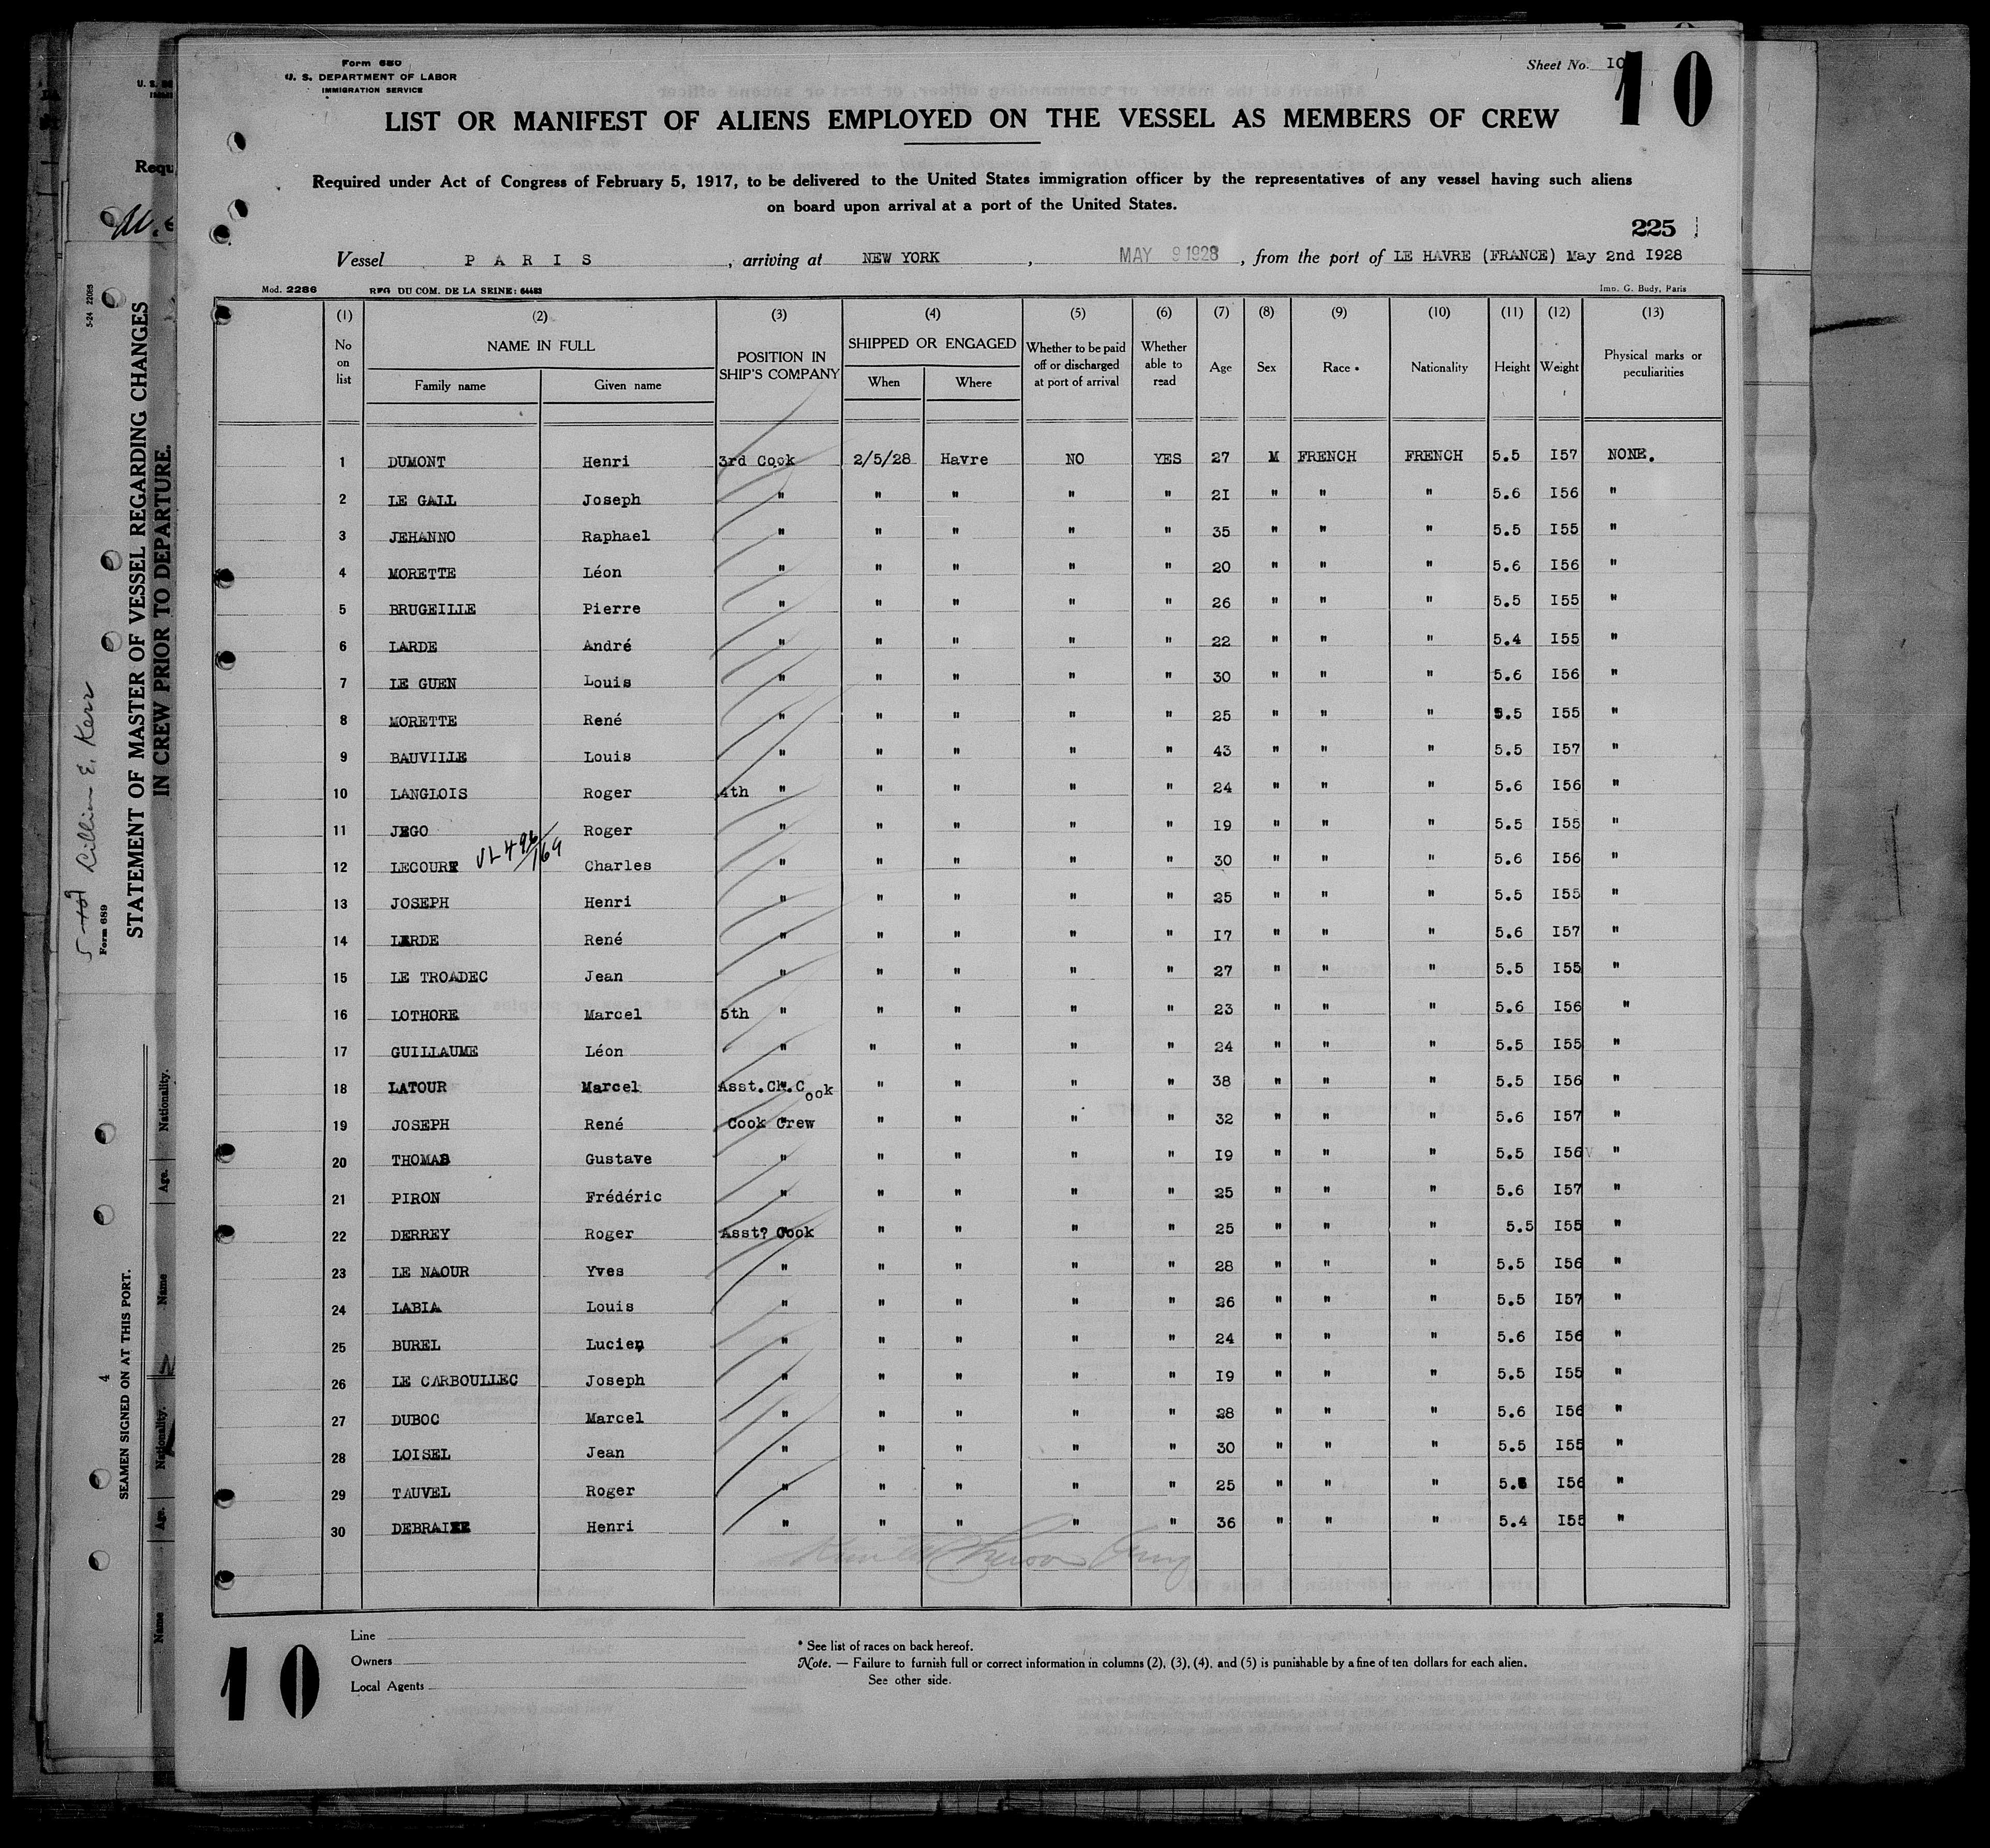 Form 680
U. S. DEPARTMENT OF LABOR
IMMIGRATION SERVICE
Sheet No. 10
10
LIST OR MANIFEST OF ALIENS EMPLOYED ON THE VESSEL AS MEMBERS OF CREW
Required under Act of Congress of February 5, 1917, to be delivered to the United States immigration officer by the representatives of any vessel having such aliens
on board upon arrival at a port of the United States.
225
Vessel P A R I S, arriving at NEW YORK, MAY 9 1928, from the port of LE HAVRE (FRANCE) May 2nd I928
Mod. 2286 REG DU COM. DE LA SEINE: 64483 Imp. G. Budy, Paris
(1) (2) (3) (4) (5) (6) (7) (8) (9) (10) (11) (12) (13)
No on list NAME IN FULL Family name Given name POSITION IN SHIP'S COMPANY SHIPPED OR ENGAGED When Where Whether to be paid off or discharged at port of arrival Whether able to read Age Sex Race * Nationality Height Weight Physical marks or peculiarities
1 DUMONT Henri 3rd Cook 2/5/28 Havre NO YES 27 M FRENCH FRENCH 5.5 I57 NONE.
2 LE GALL Joseph " " " " " 2I " " " 5.6 I56 "
3 JEHANNO Raphael " " " " " 35 " " " 5.5 I55 "
4 MORETTE Léon " " " " " 20 " " " 5.6 I56 "
5 BRUGEILLE Pierre " " " " " 26 " " " 5.5 I55 "
6 LARDE André " " " " " 22 " " " 5.4 I55 "
7 LE GUEN Louis " " " " " 30 " " " 5.6 I56 "
8 MORETTE René " " " " " 25 " " " 5.5 I55 "
9 BAUVILLE Louis " " " " " 43 " " " 5.5 I57 "
10 LANGLOIS Roger 4th " " " " " 24 " " " 5.6 I56 "
11 JEGO Roger " " " " " I9 " " " 5.5 I55 "
12 LECOURT Charles " " " " " 30 " " " 5.6 I56 "
13 JOSEPH Henri " " " " " 25 " " " 5.5 I55 "
14 LARDE René " " " " " I7 " " " 5.6 I57 "
15 LE TROADEC Jean " " " " " 27 " " " 5.5 I55 "
16 LOTHORE Marcel 5th " " " " " 23 " " " 5.6 I56 "
17 GUILLAUME Léon " " " " " 24 " " " 5.5 I55 "
18 LATOUR Marcel Asst.Ch.Cook " " " " 38 " " " 5.5 I56 "
19 JOSEPH René Cook Crew " " " " 32 " " " 5.6 I57 "
20 THOMAS Gustave " " " " " I9 " " " 5.5 I56 "
21 PIRON Frédéric " " " " " 25 " " " 5.6 I57 "
22 DERREY Roger Asst? Cook " " " " 25 " " " 5.5 I55 "
23 LE NAOUR Yves " " " " " 28 " " " 5.5 I56 "
24 LABIA Louis " " " " " 26 " " " 5.5 I57 "
25 BUREL Lucien " " " " " 24 " " " 5.6 I56 "
26 LE CARBOULLEC Joseph " " " " " I9 " " " 5.5 I55 "
27 DUBOC Marcel " " " " " 28 " " " 5.6 I56 "
28 LOISEL Jean " " " " " 30 " " " 5.5 I55 "
29 TAUVEL Roger " " " " " 25 " " " I56 "
30 Henri " " " " " 36 " " " 5.4 I55 "
Line
Owners
Local Agents
* See list of races on back hereof.
Note. — Failure to furnish full or correct information in columns (2), (3), (4), and (5) is punishable by a fine of ten dollars for each alien.
See other side.
10
STATEMENT OF MASTER OF VESSEL REGARDING CHANGES
IN CREW PRIOR TO DEPARTURE.
Form 689
Lillian E. Kerr
SEAMEN SIGNED ON AT THIS PORT.
4
Name Age. Nationality. Name Age. Nationality.